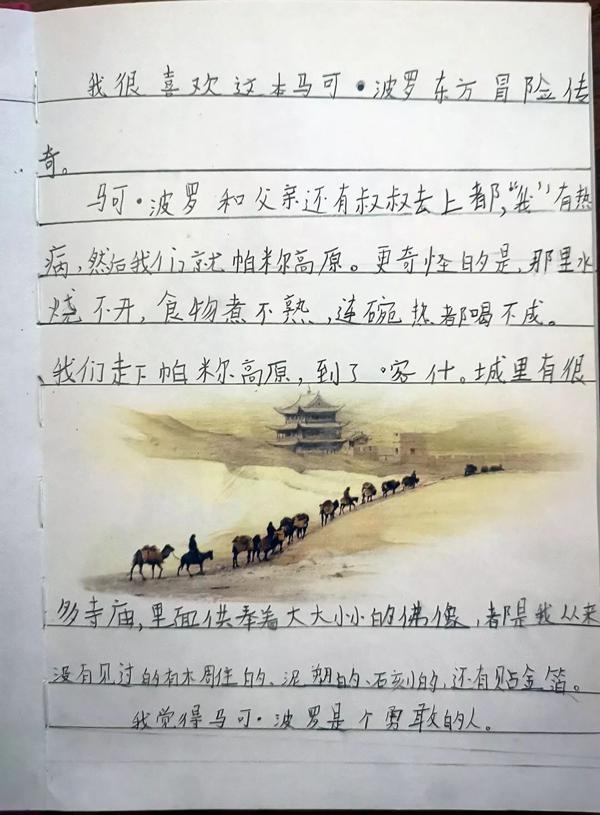 我很喜欢这本马可·波罗东方冒险传
奇。
马可·波罗和父亲还有叔叔去上都,“我”有热
病,然后我们就帕米尔高原。更奇怪的是,那里水
烧不开,食物煮不熟,连碗热都喝不成。
我们走下帕米尔高原,到了喀什。城里有很
多寺庙,里面供奉着大大小小的佛像,都是我从来
没有见过的有木周住的、泥朔的、石刻的,还有贴金箔。
我觉得马可·波罗是个勇敢的人。